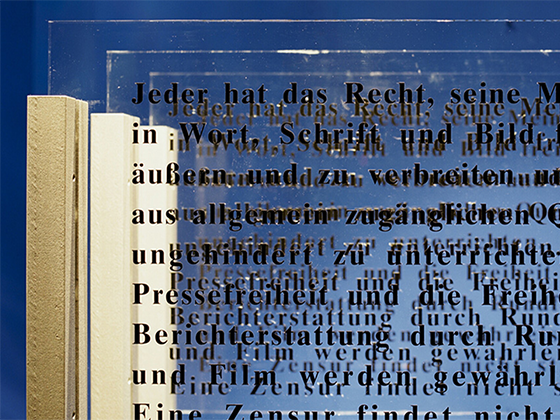 Jeder hat das Recht, seine M
in Wort, Schrift und Bild
äußern und zu verbreiten u
aus allgemein zugänglichen
ungehindert zu unterrichte
Pressefreiheit und die Freih
Berichterstattung durch Ru
und Film werden gewährl
Eine Zensur findet nicht